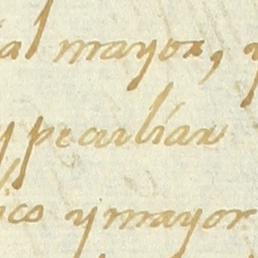 al mayor, y
y peculiar
ico y mayor